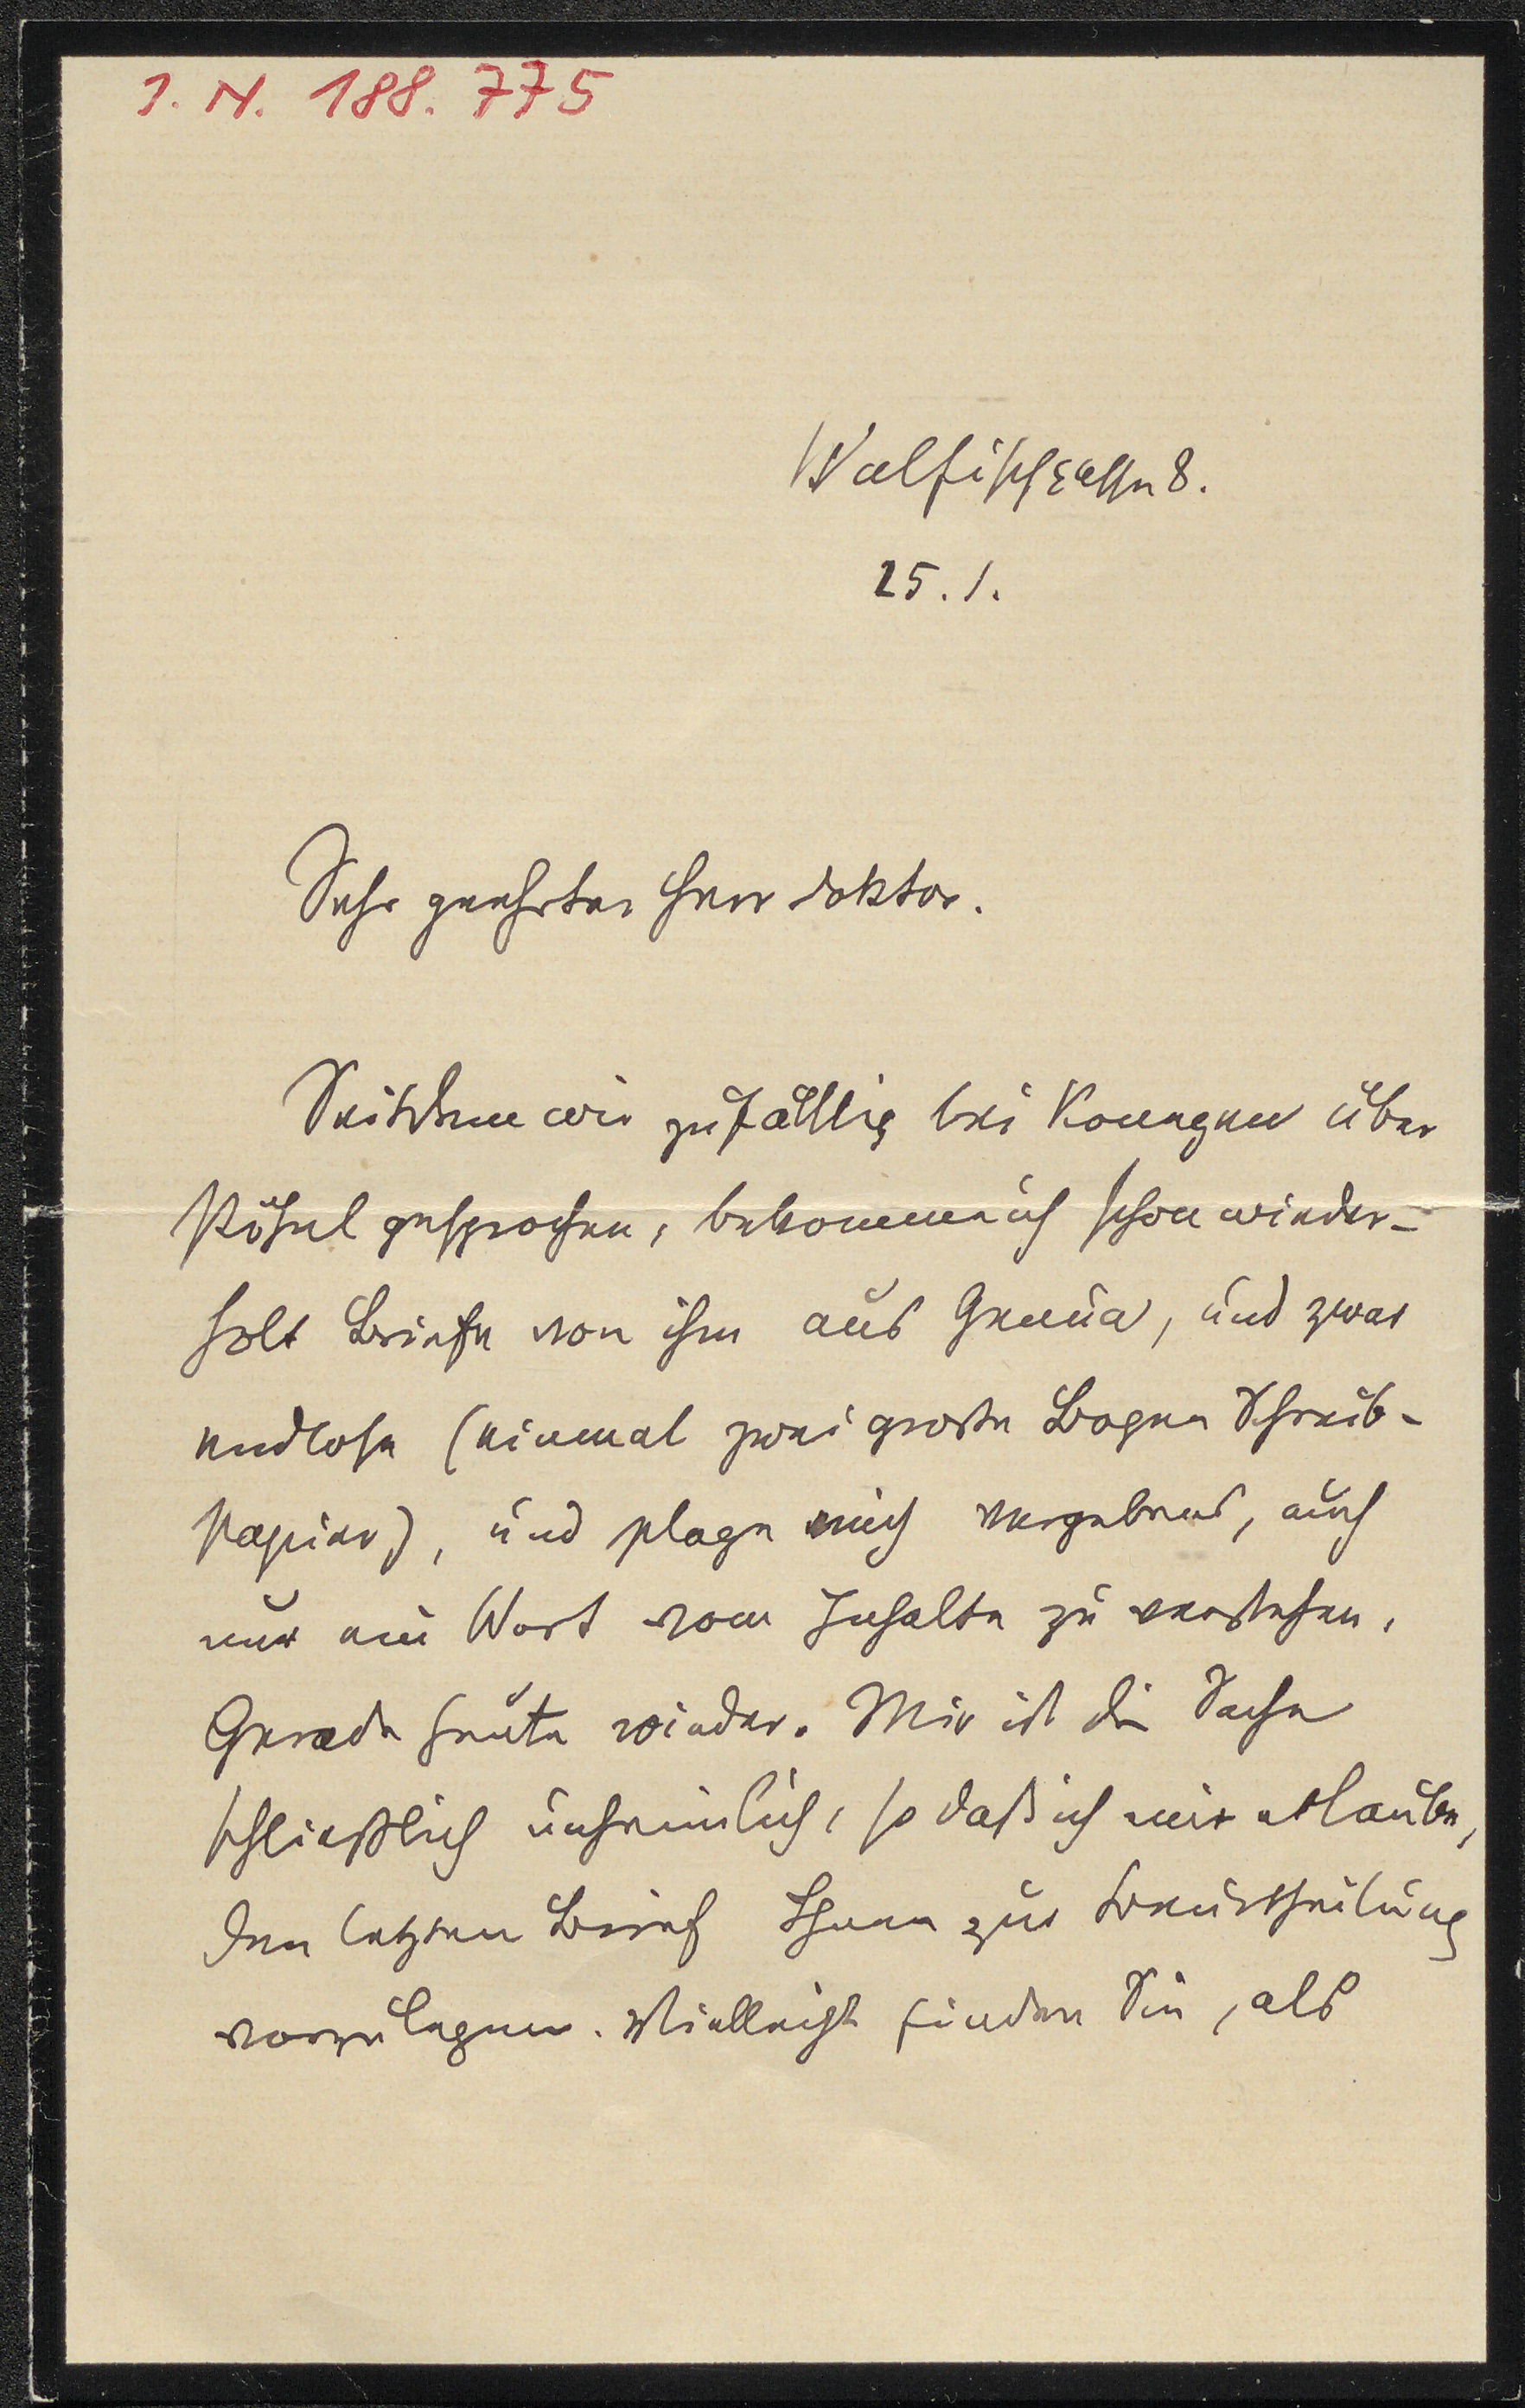 I. N. 188.775
Walfischgasse 8.
25. I.
Sehr geehrter Herr Doktor.
Seitdem wir zufällig bei Konegen über
Pöhnl gesprochen, bekomme ich schon wieder-
holt Briefe von ihm aus Genua, und zwar
endlose (einmal zwei große Bogen Schreib-
papier), und plage mich vergebens, auch
nur ein Wort vom Inhalte zu verstehen.
Gerade heute wieder. Mir ist die Sache
schließlich unheimlich, so daß ich mir erlaube,
den letzten Brief Ihnen zur Beurtheilung
vorzulegen. Vielleicht finden Sie, als